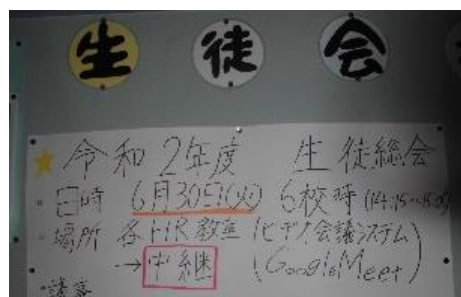 生徒会
令和2年度 生徒総会
日時 6月30日(火) 6校時
場所 各HR教室 (ビデオ会議システム
→中継 (GoogleMeet)
議事